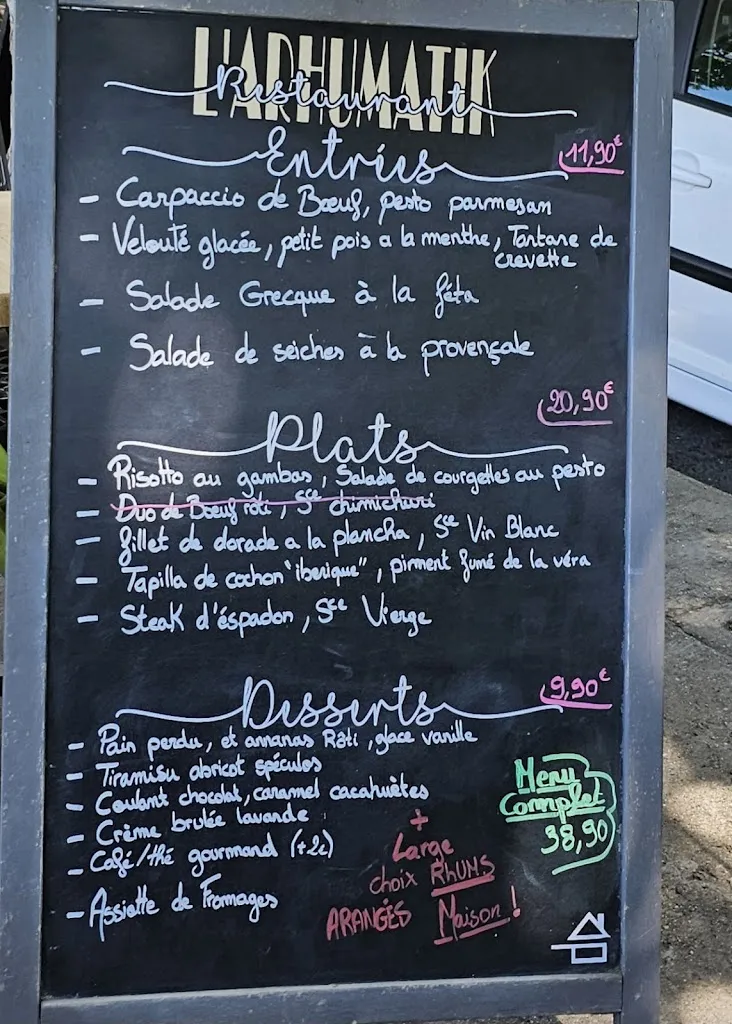 L'ARHUMATIK
Restaurant
Entrées
11,90€
- Carpaccio de Bœuf, pesto parmesan
- Velouté glacée, petit pois a la menthe, Tartare de
crevette
- Salade Grecque à la féta
- Salade de seiches à la provençale
20,90€
Plats
- Risotto au gambas, Salade de courgettes au pesto
- Duo de Bœuf rôti, Sce chimichurri
- fillet de dorade a la plancha, Sce Vin Blanc
- Tapilla de cochon "iberique", pirment fumé de la véra
- Steak d'éspadon, Sce Vierge
9,90€
Desserts
- Pain perdu, et annanas Rôti, glace vanille
- Tiramisu abricot spéculos
- Coulant chocolat, caramel cacahuètes
- Crème brulée lavande
- Café/thé gourmand (+2€)
- Assiette de Fromages
Menu
Complet
38,90
+
Large
choix RhUMS
ARANGÉS Maison !